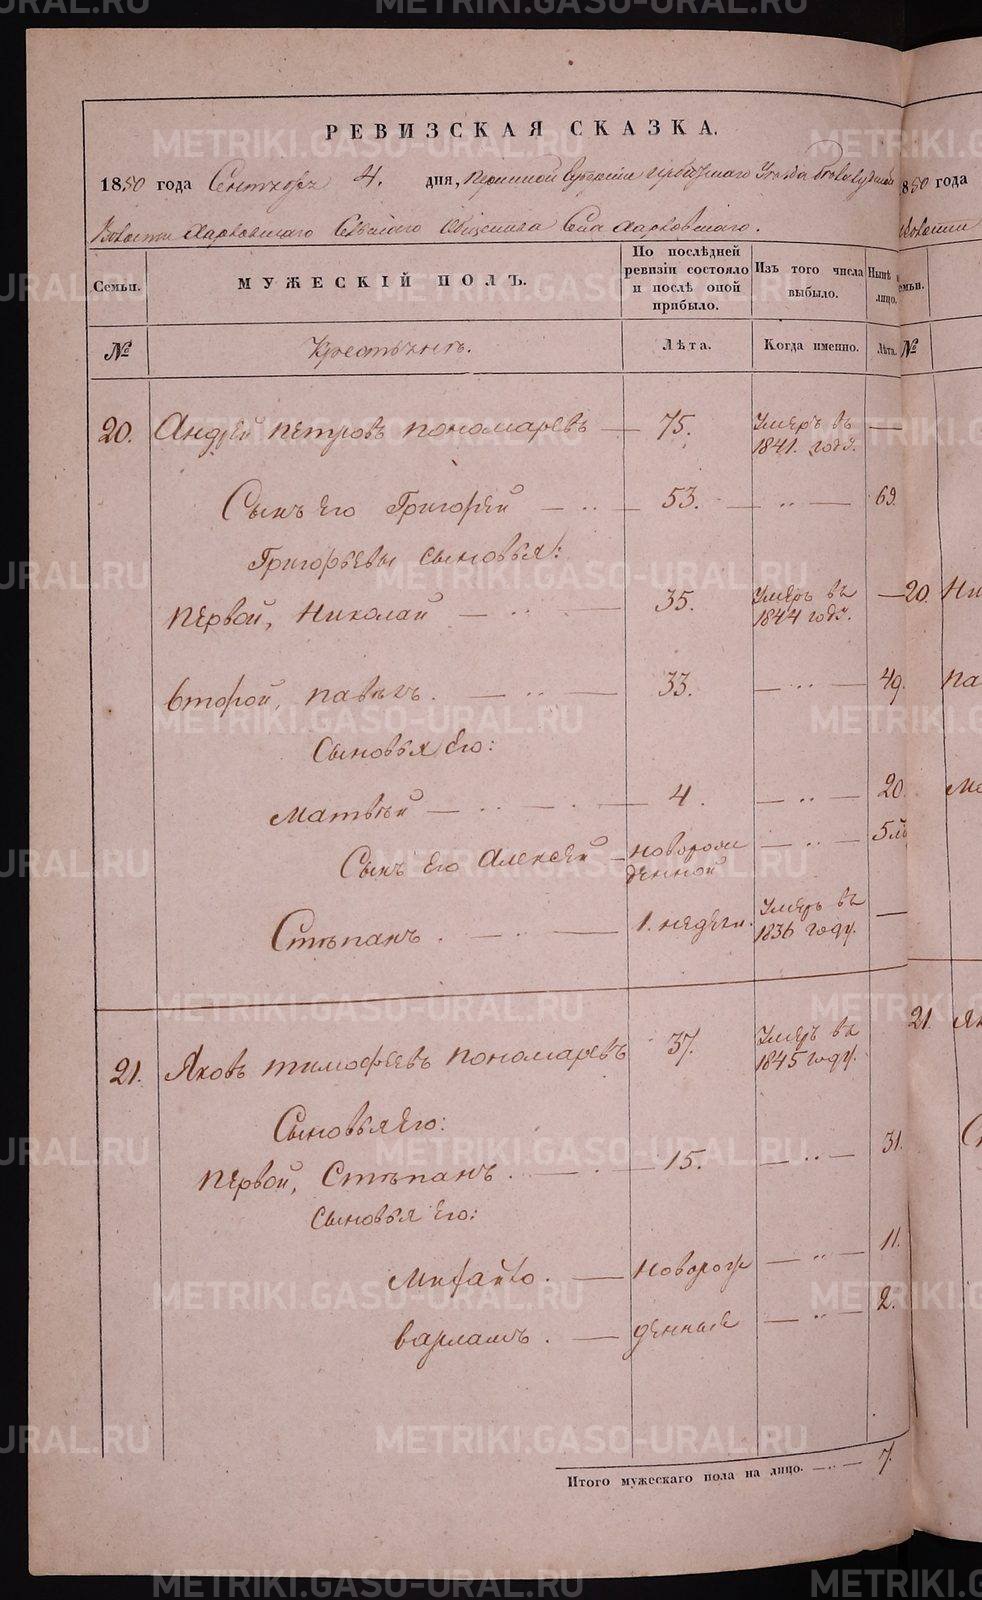 РЕВИЗСКАЯ СКАЗКА.
1850 года Сентября 4. дня, Пермской Губернии Ирбитскаго Уезда
Волости Харловскаго Сельскаго Общества Села Харловскаго.
Семьи.
МУЖЕСКІЙ ПОЛЪ.
По послѣдней ревизіи состояло и послѣ оной прибыло.
Изъ того числа выбыло.
Нынѣ на лицо.
№
Крестьянъ.
Лѣта.
Когда именно.
Лѣта.
20. Андрей Петровъ Пономаревъ — 75. Умеръ въ 1841. году. —
Сынъ его Григорей — 53. — 69.
Григорьевы сыновья:
Первой, Николай — 35. Умеръ въ 1844 году. —
Второй, Павелъ. — 33. — 49.
Сыновья его:
Матвѣй — 4. — 20.
Сынъ его Алексѣй — новорожденной — 5
Степанъ. — 1. недели. Умеръ въ 1836 году. —
21. Яковъ Тимофеевъ Пономаревъ 37. Умеръ въ 1845 году.
Сыновья его:
Первой, Степанъ. — 15. — 31.
Сыновья его:
Михайло. — новорож — 11.
Варламъ. — денные — 2.
Итого мужескаго пола на лицо. — 7.
1850 года
Волости
Семьи.
№
20. Ни
Па
Ма
21. Як
С
METRIKI.GASO-URAL.RU